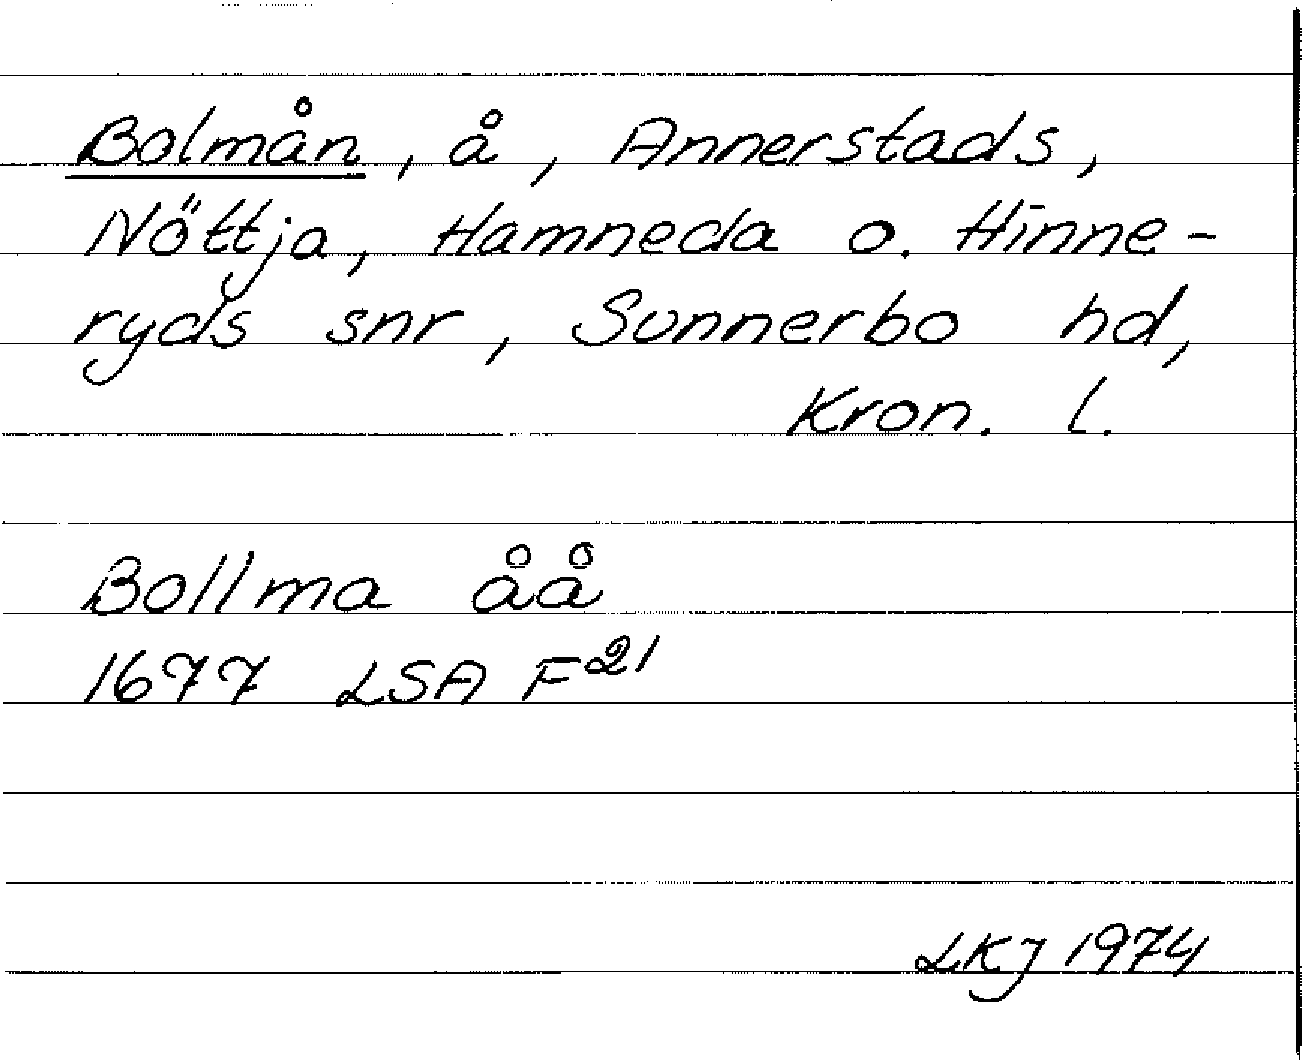 Bolmån, å, Annerstads,
Nöttja, Hamneda o. Hinne-
ryds snr, Sunnerbo hd,
Kron. l.
Bollma åå
1677 LSA F²¹
LKJ 1974